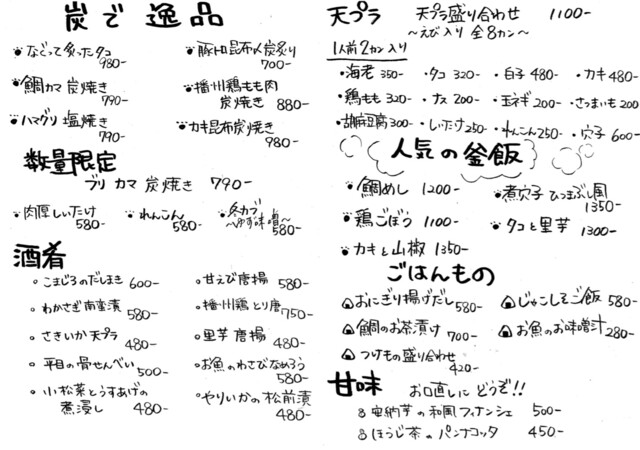 炭で逸品
なぐって炙ったタコ
980-
鯛カマ 炭焼き
790-
ハマグリ 塩焼き
790-
豚トロ昆布〆炭炙り
700-
播州鶏もも肉
炭焼き 880-
カキ昆布炭焼き
980-
数量限定
ブリ カマ 炭焼き 790-
肉厚しいたけ
580-
れんこん
580-
冬カブ
〜ゆず味噌〜
580-
酒肴
こまじろのだしまき 600-
わかさぎ南蛮漬
580-
さきいか天プラ
480-
平目の骨せんべい
500-
小松菜とうすあげの
煮浸し 480-
甘えび唐揚 580-
播州鶏とり唐
750-
里芋 唐揚 480-
お魚のわさびなめろう
580-
やりいかの松前漬
480-
天プラ 天プラ盛り合わせ 1100-
〜えび入り 全8カン〜
1人前2カン入り
・海老 350- ・タコ 320- ・白子 480- ・カキ 480-
・鶏もも 320- ・ナス 200- ・玉ネギ 200- ・さつまいも 200-
・胡麻豆腐 300- ・しいたけ 250- ・れんこん 250- ・穴子 600-
人気の釜飯
鯛めし 1200-
鶏ごぼう 1100-
カキと山椒 1350-
煮穴子 ひつまぶし風
1350-
タコと里芋 1300-
ごはんもの
おにぎり揚げだし 580-
鯛のお茶漬け 700-
つけもの盛り合わせ
420-
じゃこしそご飯 580-
お魚のお味噌汁
280-
甘味 お口直しに どうぞ!!
安納芋の和風フィナンシェ 500-
ほうじ茶の パンナコッタ 450-